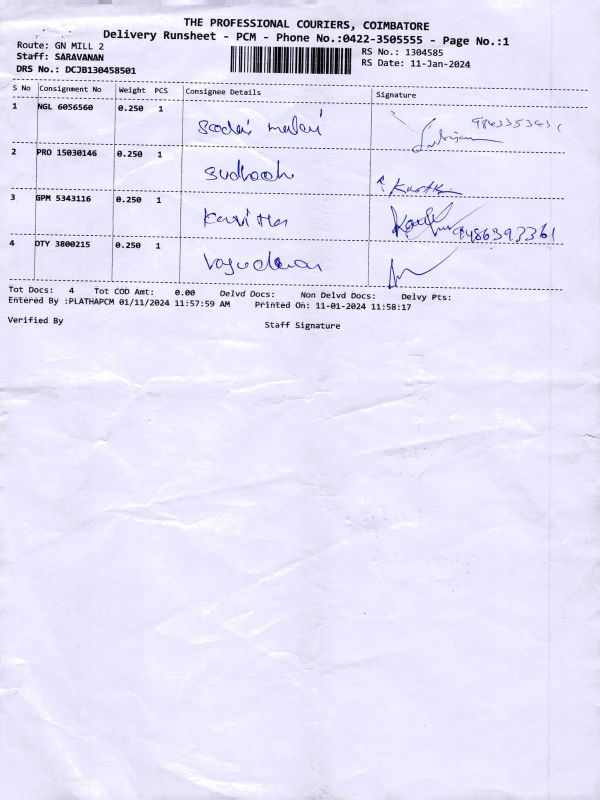 THE PROFESSIONAL COURIERS, COIMBATORE
Delivery Runsheet - PCM - Phone No.:0422-3505555 - Page No.:1
Route: GN MILL 2
Staff: SARAVANAN
DRS No.: DCJB130458501
RS No.: 1304585
RS Date: 11-Jan-2024
S No Consignment No Weight PCS Consignee Details Signature
1 NGL 6056560 0.250 1
2 PRO 15030146 0.250 1 Sudhosh
3 GPM 5343116 0.250 1 Kavitha 9486393361
4 DTY 3800215 0.250 1 Vasudevan
Tot Docs: 4 Tot COD Amt: 0.00 Delvd Docs: Non Delvd Docs: Delvy Pts:
Entered By :PLATHAPCM 01/11/2024 11:57:59 AM Printed On: 11-01-2024 11:58:17
Verified By Staff Signature